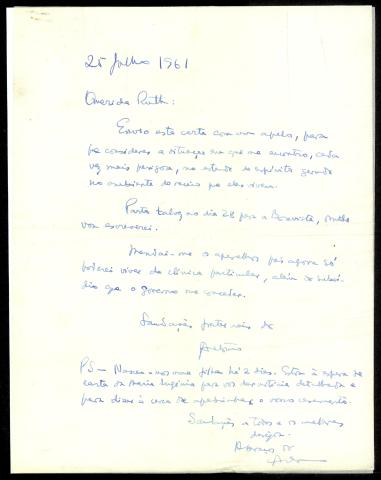 25 Julho 1961
Querida Ruth:
Envio esta carta com um apelo, para
que consideres a situação em que me encontro, cada
vez mais perigosa, no estado de espírito gerado
no ambiente de receio que eles vivem.
Parto talvez no dia 28 para a Boavista, onde
vou exonerar.
Mandai-me o aparelho, pois agora só
poderei viver da clínica particular, além do subsí-
dio que o governo me conceder.
Saudações fraternais do
PS — Nasceu-nos uma filha há 2 dias. Estou à espera de
carta da Maria Eugénia para vos dar notícia detalhada e
para dizer à cerca de o vosso casamento.
Saudações a todos e os melhores
desejos.
Abraços do